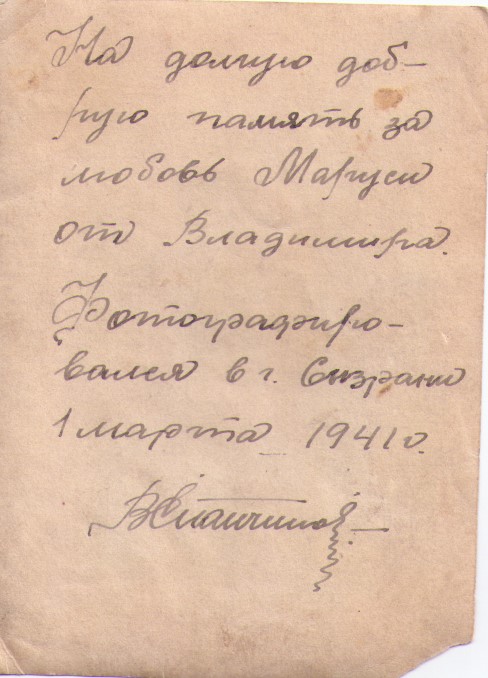 На долгую доб-
рую память за
любовь Маруси
от Владимира.
Фотографиро-
вался в г. Сызрани
1 марта 1941 г.